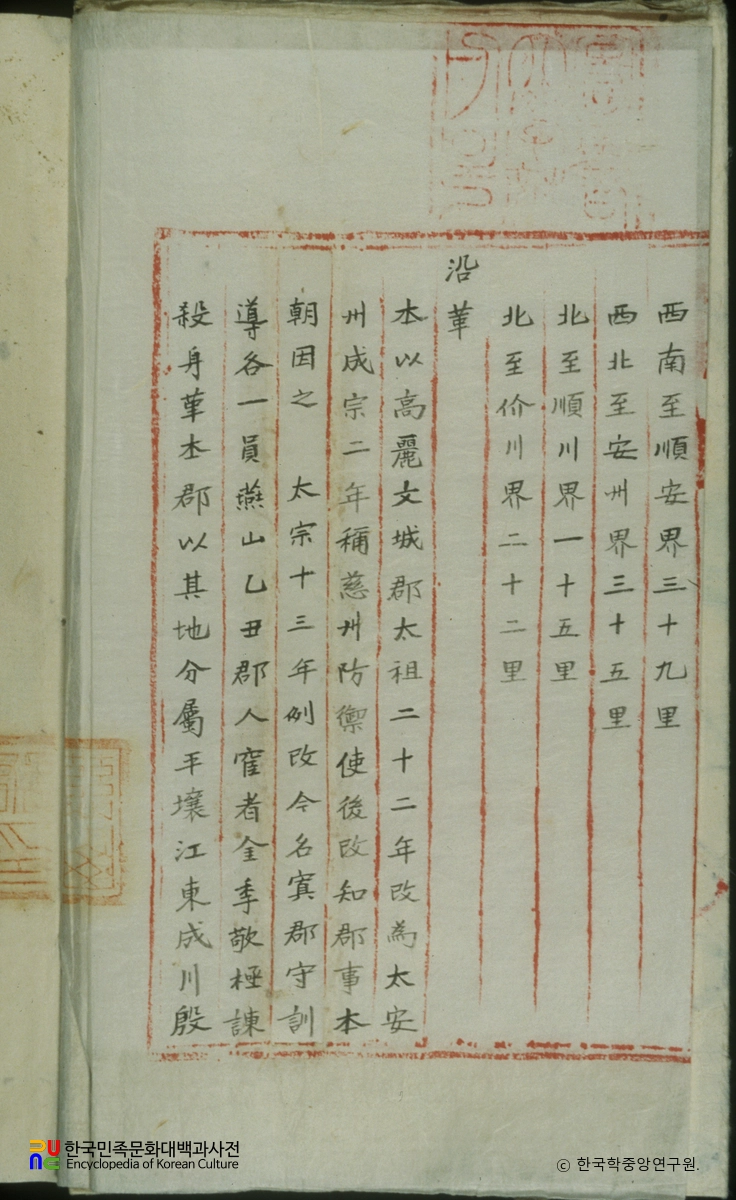 西南至順安界三十九里
西北至安州界三十五里
北至順川界一十五里
北至价川界二十二里
沿革
本以高麗文城郡太祖二十二年改為太安
州成宗二年稱慈州防禦使後改知郡事本
朝因之 太宗十三年例改今名寘郡守訓
導各一員燕山乙丑郡人宦者金季敬極諫
殺身革本郡以其地分屬平壤江東成川殷
한국민족문화대백과사전
Encyclopedia of Korean Culture
© 한국학중앙연구원.